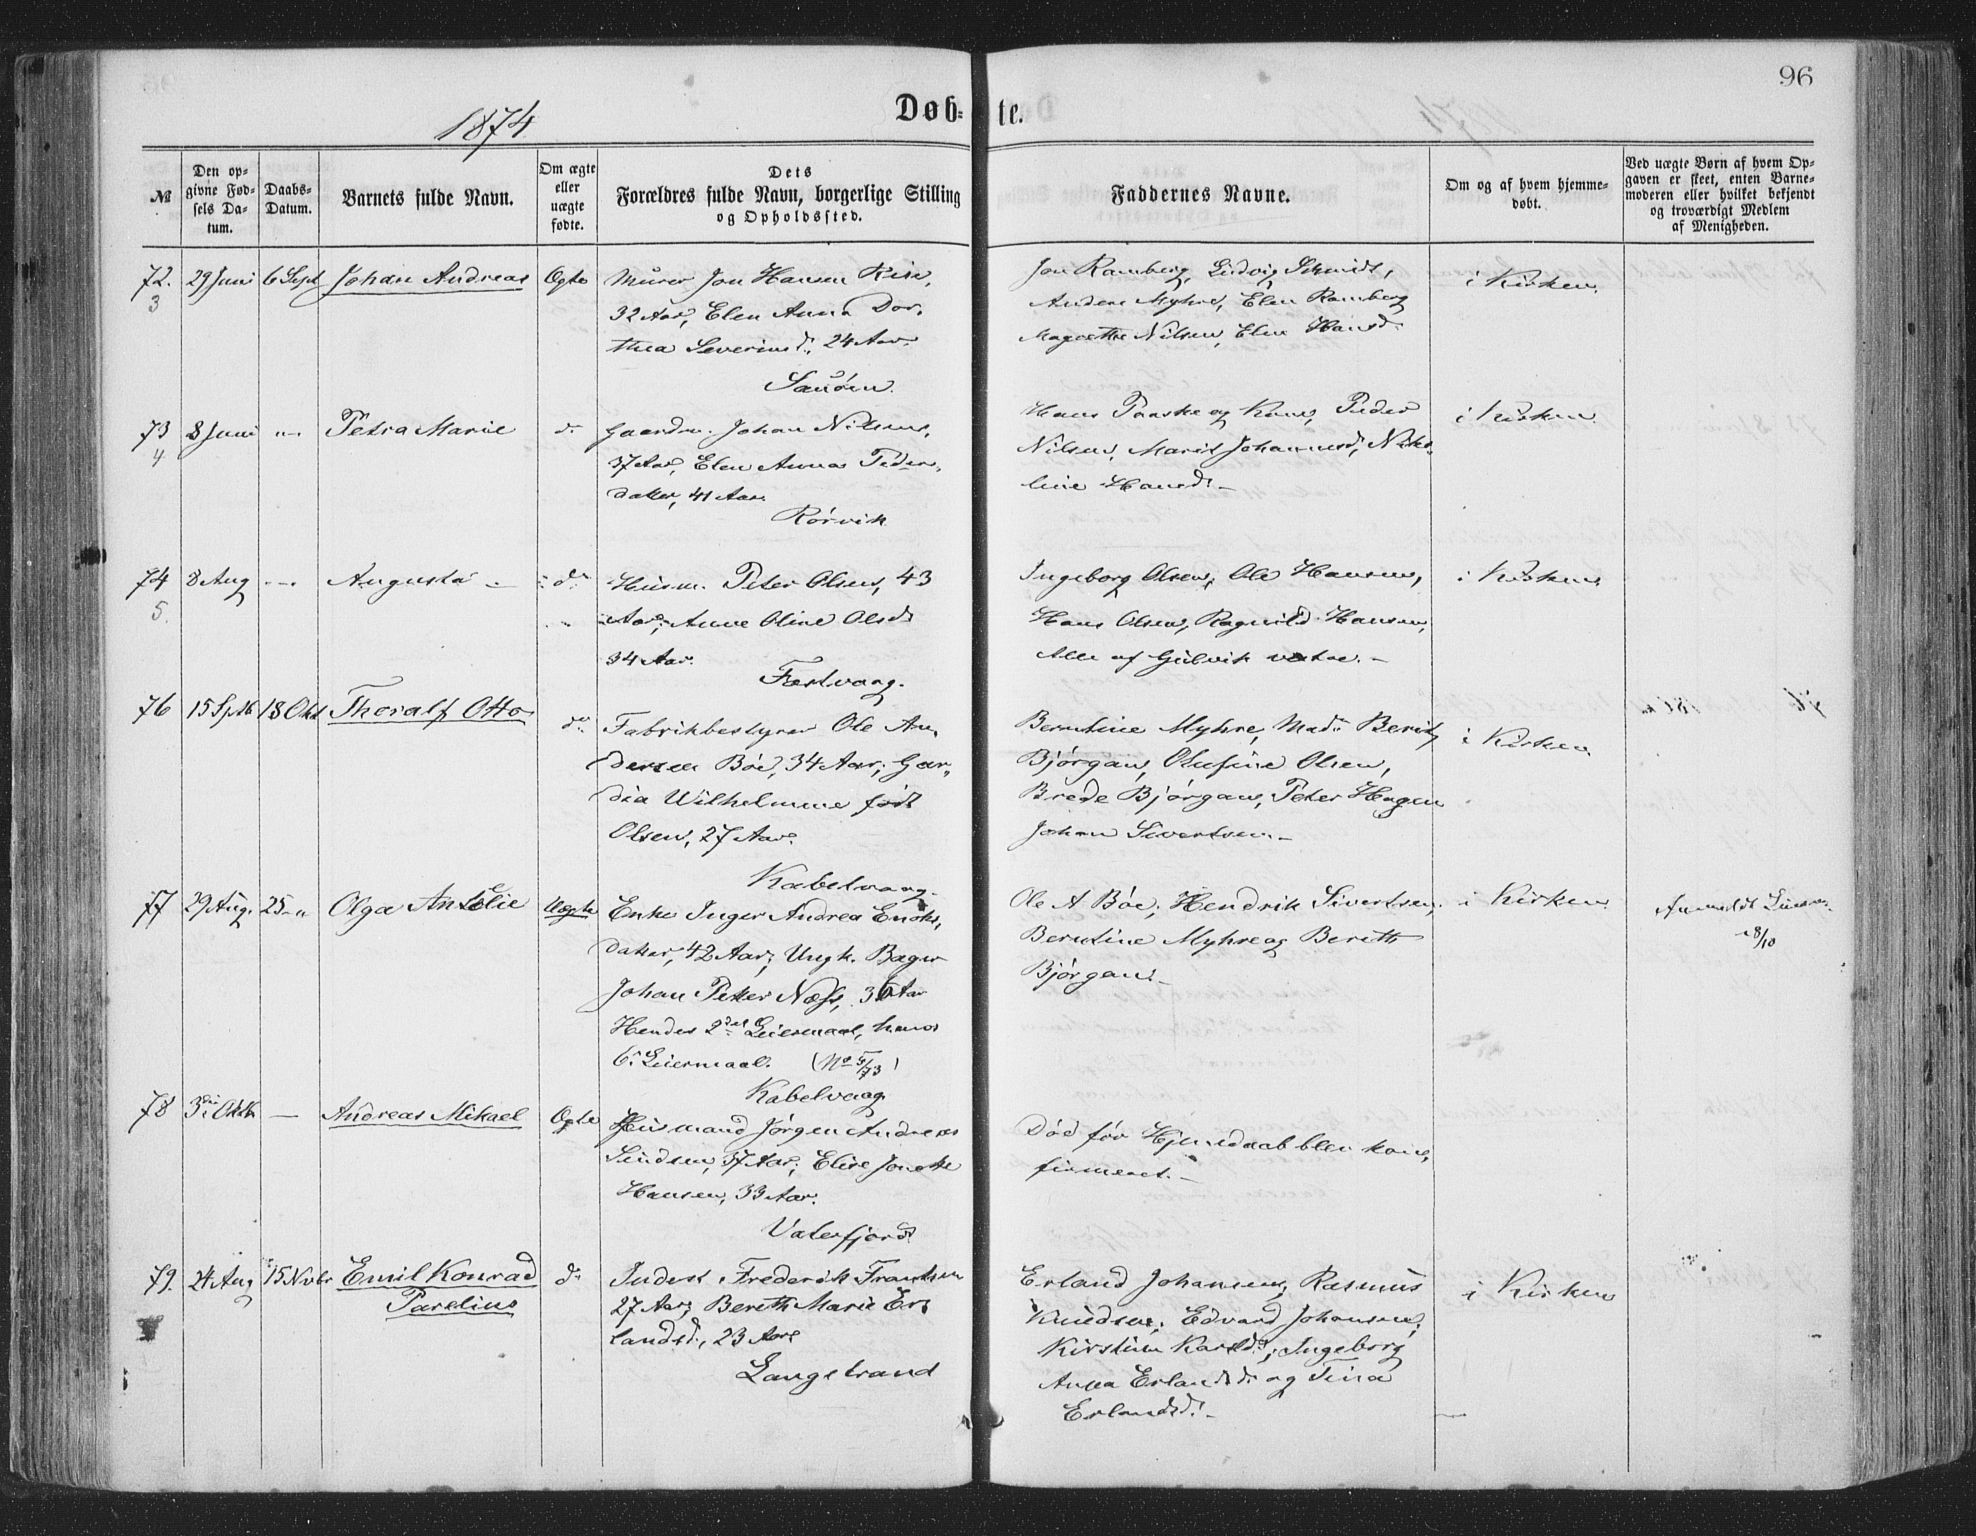 96
1874
Døb-te.
№
Den op-
givne Fød-
sels Da-
tum.
Daabs-
Datum.
Barnets fulde Navn.
Om ægte
eller
uægte
fødte.
Dets
Forældres fulde Navn, borgerlige Stilling
og Opholdssted.
Faddernes Navne.
Om og af hvem hjemme-
døbt.
Ved uægte Børn af hvem Op-
gaven er skeet, enten Barne-
moderen eller hvilket bekjendt
og troværdigt Medlem
af Menigheden.
72. 29 Juni 6 Sept Johan Andreas Ægte Murer Jon Hansen Risa,
3
32 Aar, Elen Anna Dor-
thea Severinsd., 24 Aar.
Sauøen.
Jon Ramberg, Ludvig Schmidt,
Anders Myhre, Elen Ramberg
Magrethe Nilsen, Elen Hansd.
i Kirken.
73 8 Juni -"- Petra Marie do Gaardm. Johan Nilsen,
4
37 Aar, Elen Anna Peders-
datter, 41 Aar.
Rørvik
Hans Paaske og Kone, Peder
Nilsen, Marit Johannesd., Niko-
line Hansd. -
i Kirken
74 8 Aug -"- Augusta - do Husm. Peter Olsen, 43
5.
Aar, Anne Oline Olsd.
34 Aar.
Festvaag.
Ingeborg Olsen, Ole Hansen,
Hans Olsen, Ragnild Hansen,
Alle af Gulvik vestre. -
i Kirken.
76 15 Sptb 18 Okt Thoralf Otto do Fabrikbestyrer Ole An-
dersen Böe, 34 Aar, Gar-
dia Wilhelmine født
Olsen, 27 Aar.
Kabelvaag.
Berntine Myhre, Mad. Berit
Bjørgan, Olufine Olsen,
Brede Bjørgan, Peter Hagen
Johan Sivertsen. -
i Kirken.
77 29 Aug. 25 -"- Olga Antelie Uægte Enke Inger Andrea Enoks-
datter, 42 Aar, Ungk. Bager
Johan Petter Næss, 36 Aar
Hendes 2det Leiermaal, hans
6te Leiermaal. (No 5/73)
Kabelvaag
Ole A Böe, Hendrik Sivertsen,
Berntine Myhre og Berith
Bjørgan. -
i Kirken
Anmeldt
18/10
78 3die Oktb. — Andreas Mikael Ægte Husmand Jørgen Andreas
Sindsen, 37 Aar, Elise Jonette
Hansen, 33 Aar.
Vaterfjord
Död för Hjemedaab blev kon-
firmeret. -
79. 24 Aug 15 Novbr Emil Konrad do Inderst Frederik Frantsen
Parelius
27 Aar, Bereth Marie Er-
landsd., 23 Aar
Langstrand
Erland Johansen, Rasmus
Knudsen, Edvard Johansen,
Kirstine Karlsd., Ingeborg
Anna Erlandsd. og Tina
Erlandsd. -
i Kirken